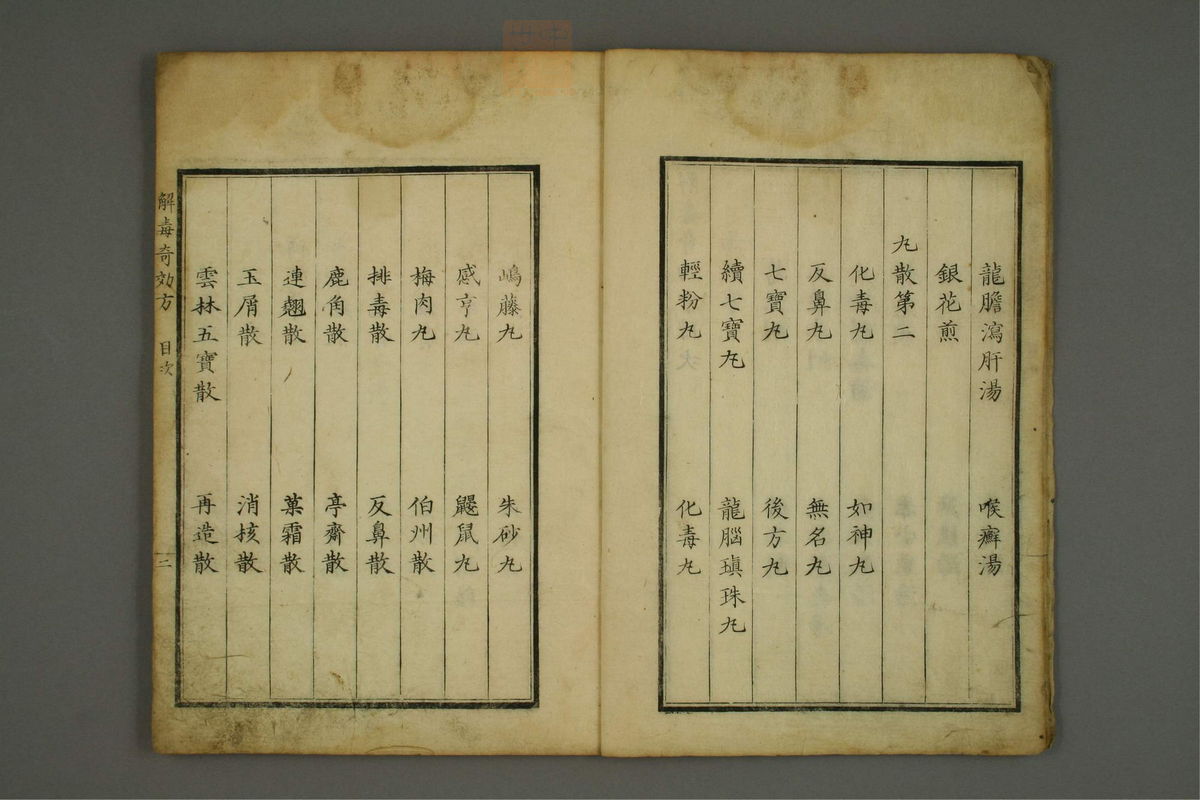 龍膽瀉肝湯 喉癬湯
銀花煎
丸散第二
化毒丸 如神丸
反鼻丸 無名丸
七寶丸 後方丸
續七寶丸 龍腦瑱珠丸
輕粉丸 化毒丸
嶋藤丸 朱砂丸
感亨丸 鼴鼠丸
梅肉丸 伯州散
排毒散 反鼻散
鹿角散 亭齋散
連翹散 菓霜散
玉屑散 消核散
雲林五寶散 再造散
解毒奇効方 目次 三